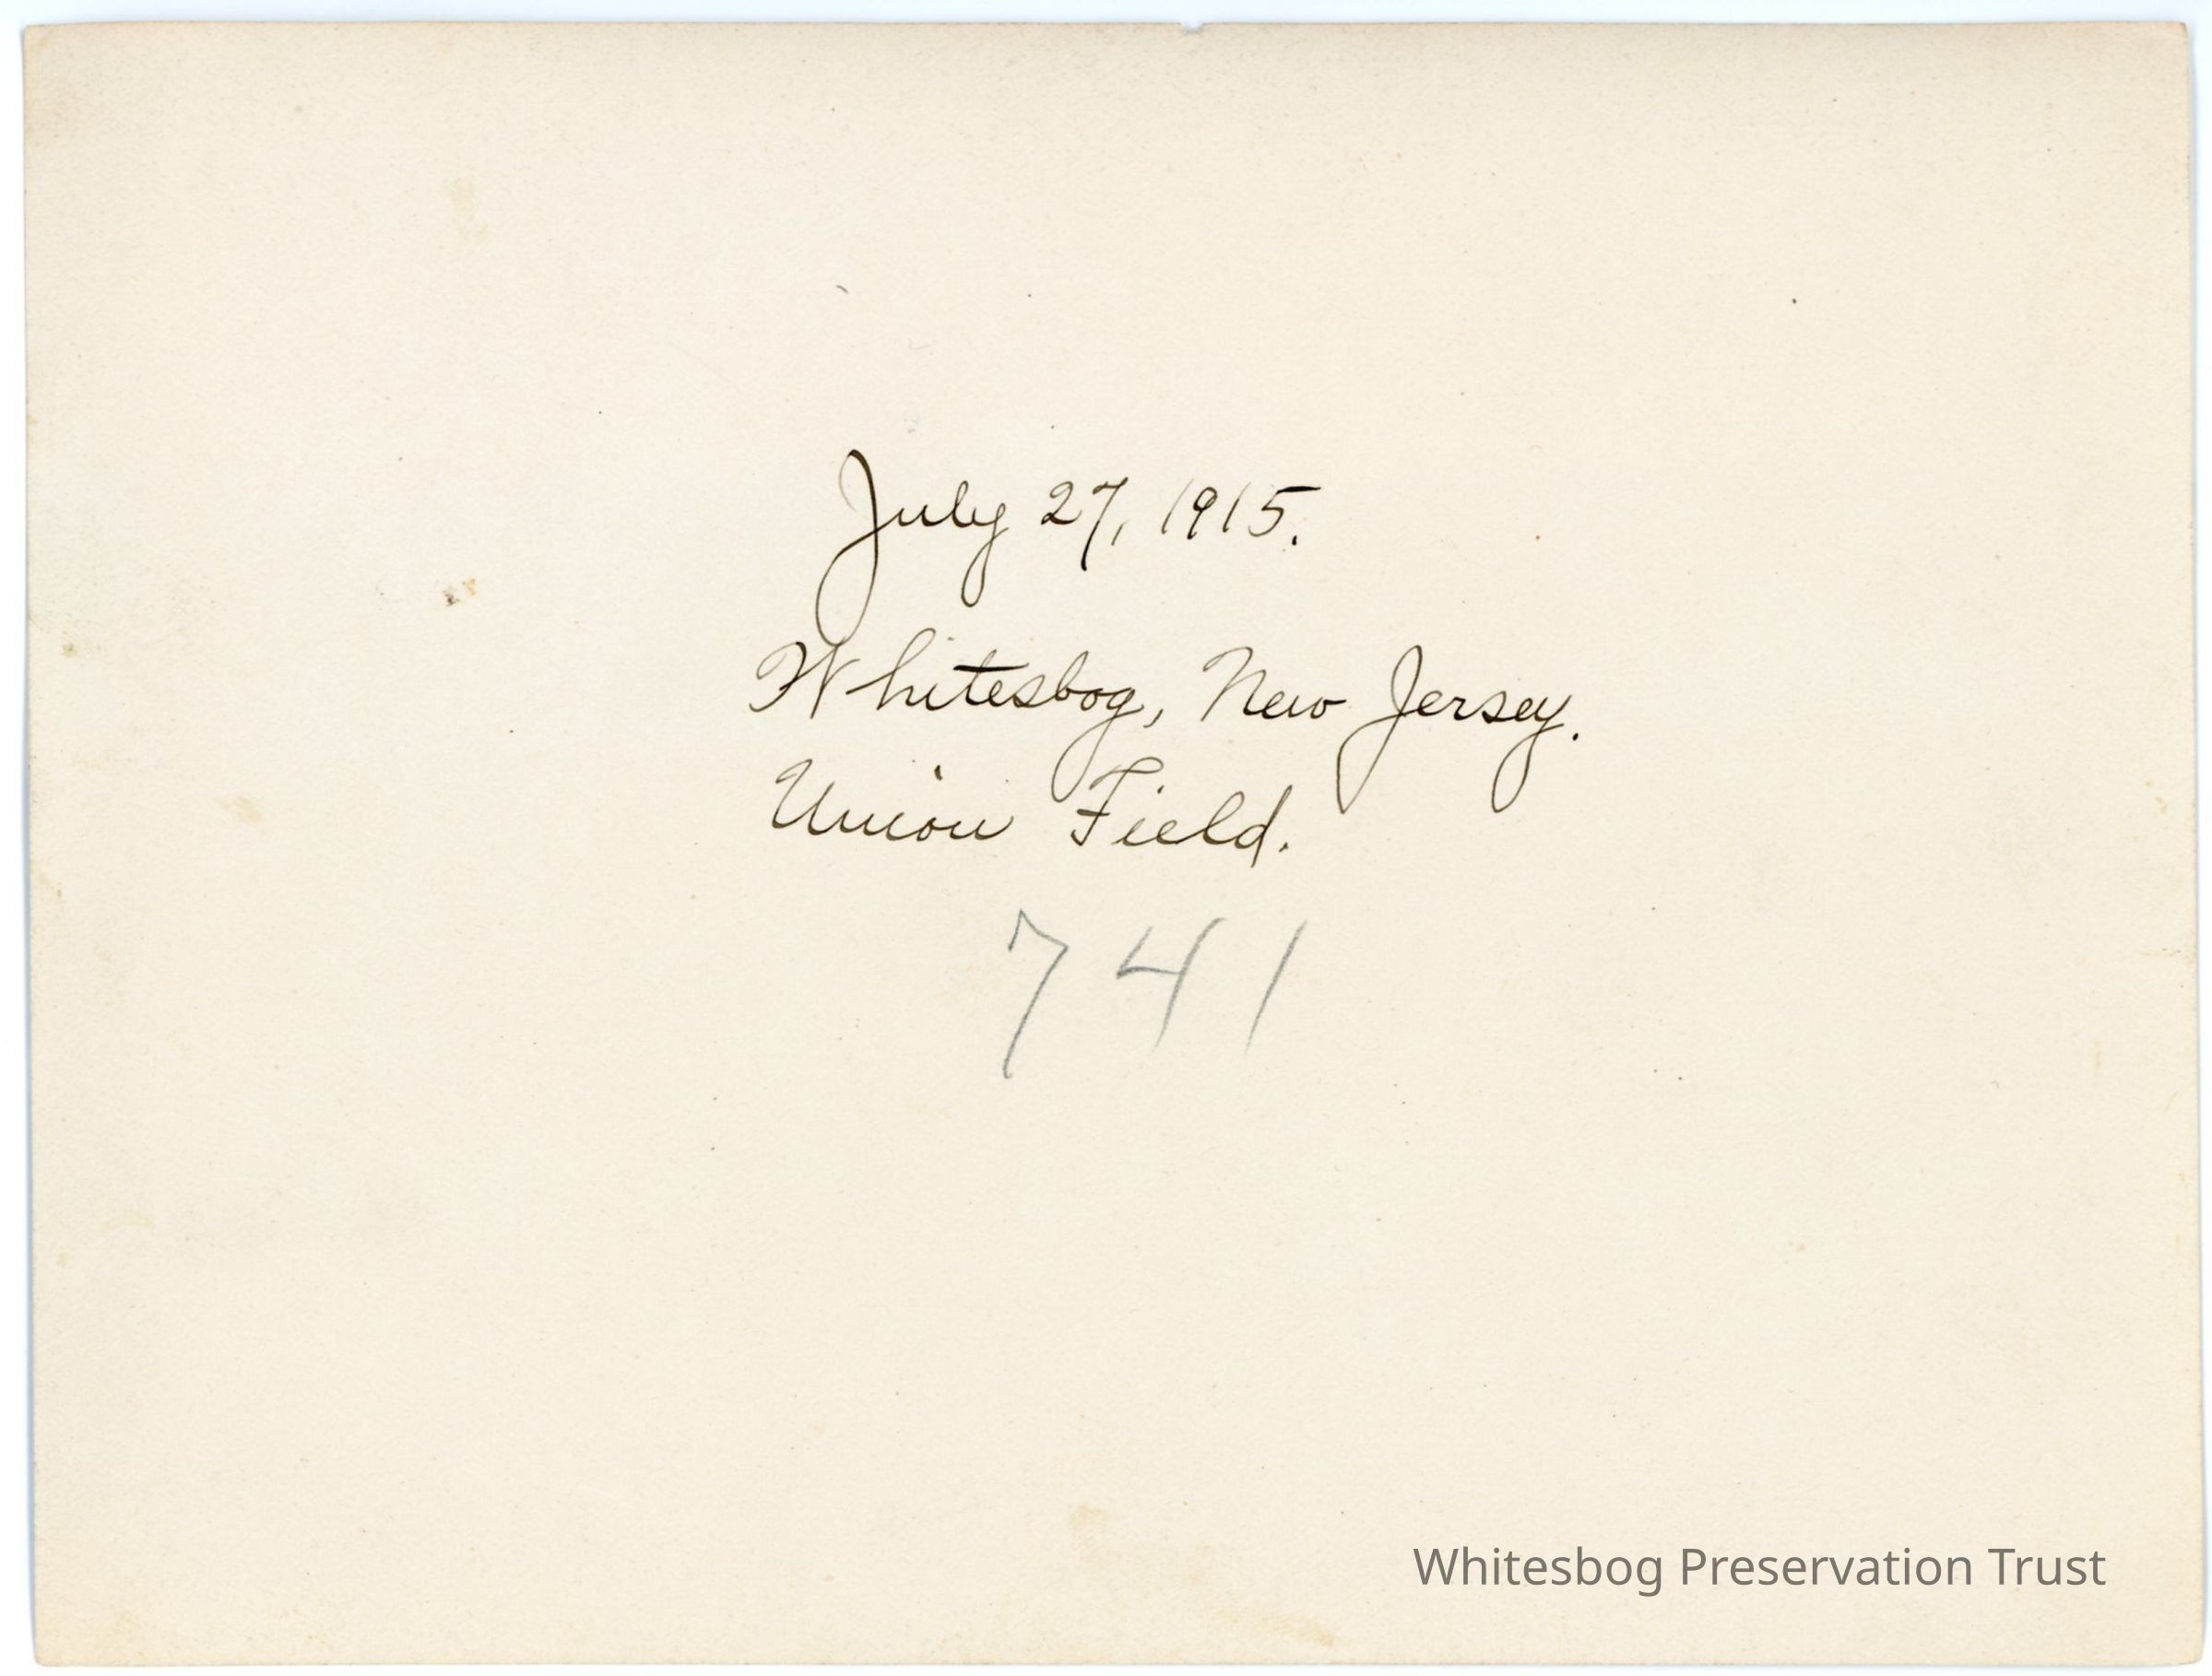 July 27, 1915.
Whitesbog, New Jersey.
Union Field.
741
Whitesbog Preservation Trust